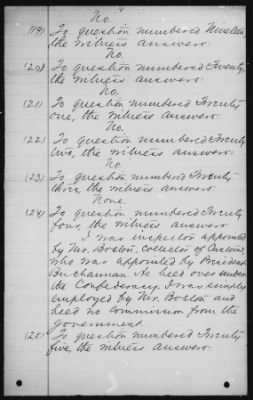 No.
(19) To question numbered Nineteen
the witness answers:
No.
(20) To question numbered Twenty
the witness answers:
No.
(21) To question numbered Twenty
one, the witness answers:
No.
(22) To question numbered Twenty
two, the witness answers:
No.
(23) To question numbered Twenty
three, the witness answers:
None.
(24) To question numbered Twenty
four, the witness answers:
I was inspector appointed
by Mr. Boston, Collector of Customs,
who was appointed by President
Buchanan. He held over under
the Confederacy. I was simply
employed by Mr. Boston and
held no commission from the
Government.
(25) To question numbered Twenty
five, the witness answers: